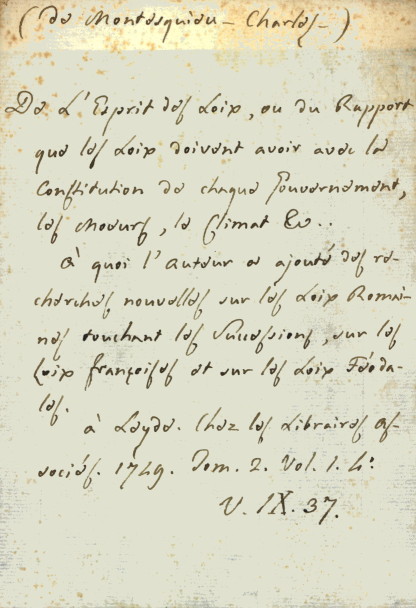 (De Montesquieu - Charles - )
De L'Esprit des Loix, ou du Rapport
que les Loix doivent avoir avec la
Constitution de chaque Gouvernement,
les Moeurs, le Climat &c..
à quoi l'Auteur a ajouté des re-
cherches nouvelles sur les Loix Romai-
nes touchant les Successions, sur les
Loix françoises et sur les Loix Féoda-
les.
à Leyde. Chez les Libraires As-
sociés. 1749. Tom. 2. Vol. 1. 4°.
V. IX. 37.